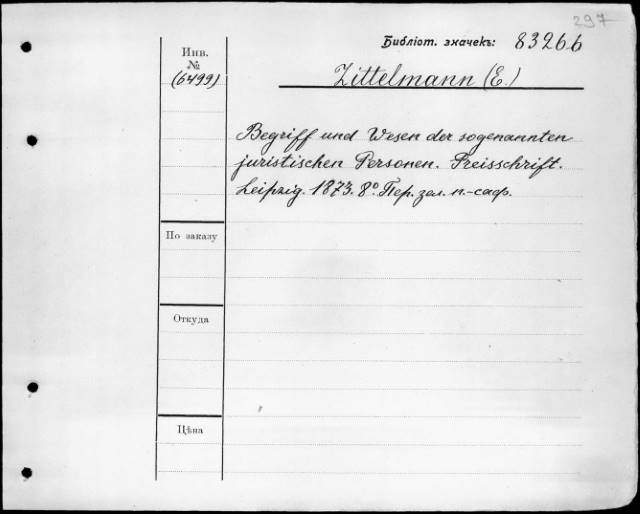 297
Библіот. значекъ: 83266
Инв.
№
(6499)
Zittelmann (E.)
Begriff und Wesen der sogenannten
juristischen Personen. Preisschrift.
Leipzig. 1873. 8º. Пер. зел. п.-саф.
По заказу
Откуда
Цѣна